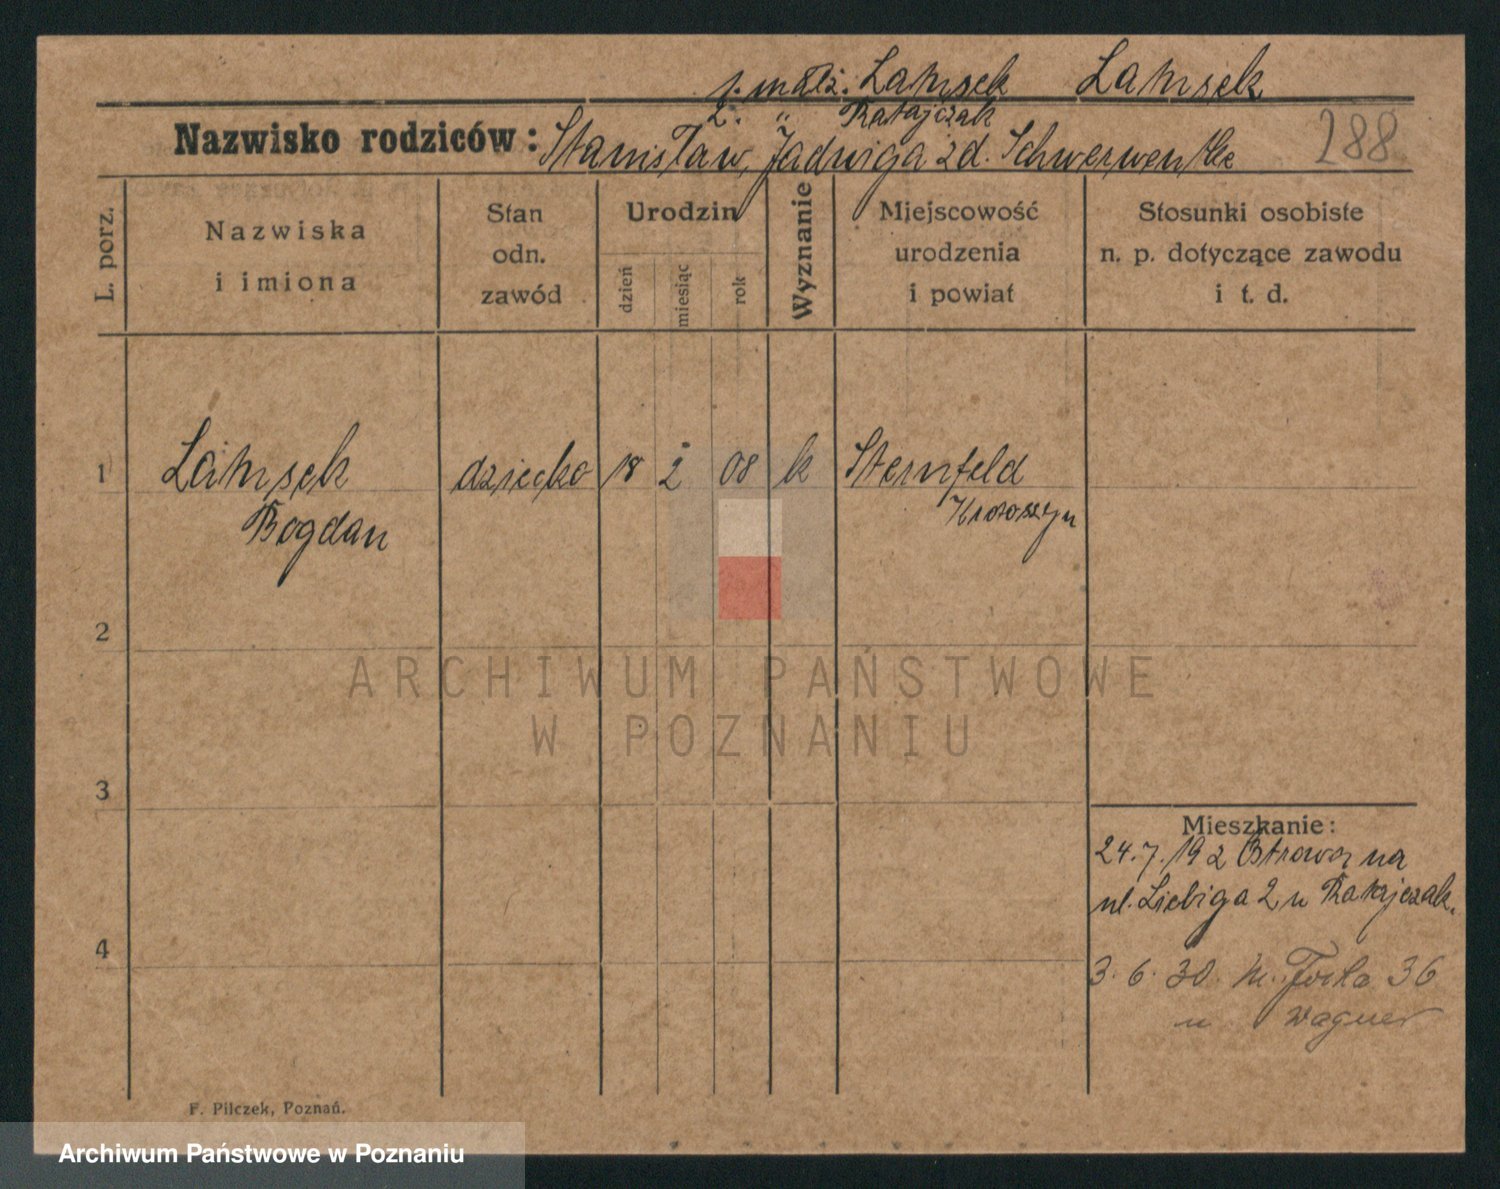 1. małż. Lamsek Lamsek
2. " Ratajczak
Nazwisko rodziców: Stanisław, Jadwiga zd. Schwerwentke
288
L. porz.
Nazwiska
i imiona
Stan
odn.
zawód
Urodzin
dzień
miesiąc
rok
Wyznanie
Miejscowość
urodzenia
i powiat
Stosunki osobiste
n. p. dotyczące zawodu
i t. d.
1 Lamsek dziecko 18 2 08 k Sternfeld
Bogdan Krotoszyn
2
3
4
Mieszkanie:
24.7.192 Ostrowa na
ul. Liebiga 2 u Ratajczak.
3.6.30 Focha 36
u Wagner
F. Pilczek, Poznań.
ARCHIWUM PAŃSTWOWE
W POZNANIU
Archiwum Państwowe w Poznaniu